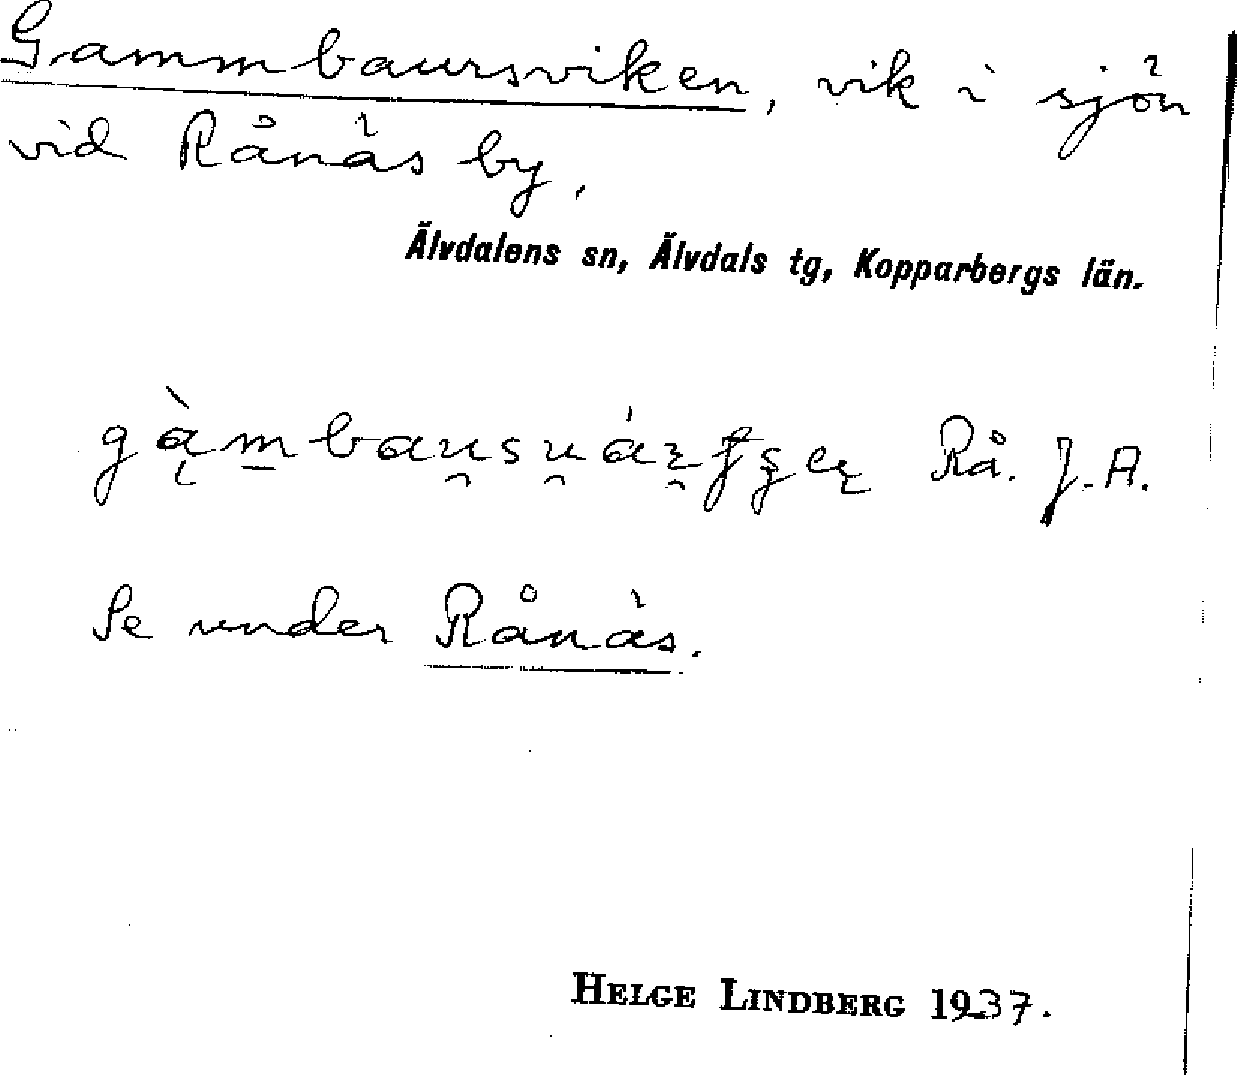 Gammbaursviken, vik i sjön
vid Rånäs by.
Älvdalens sn, Älvdals tg, Kopparbergs län.
Rå. J.A.
Se under Rånäs.
HELGE LINDBERG 1937.